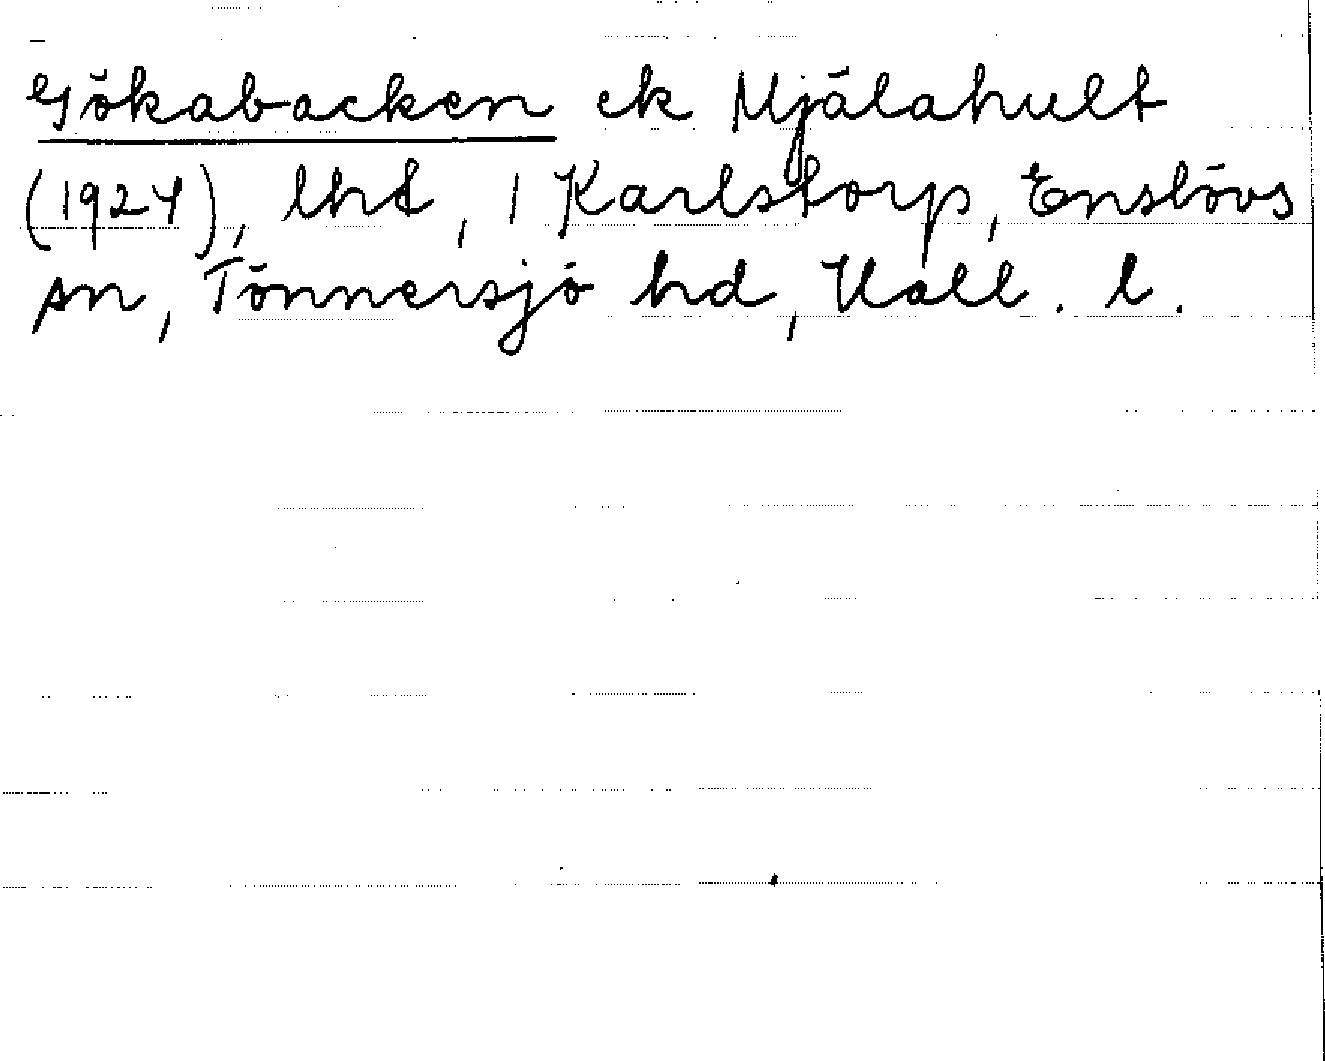 Gökabacken ek Mjälahult
(1924), lht, 1 Karlstorp, Enslövs
sn, Tönnersjö hd, Hall. l.